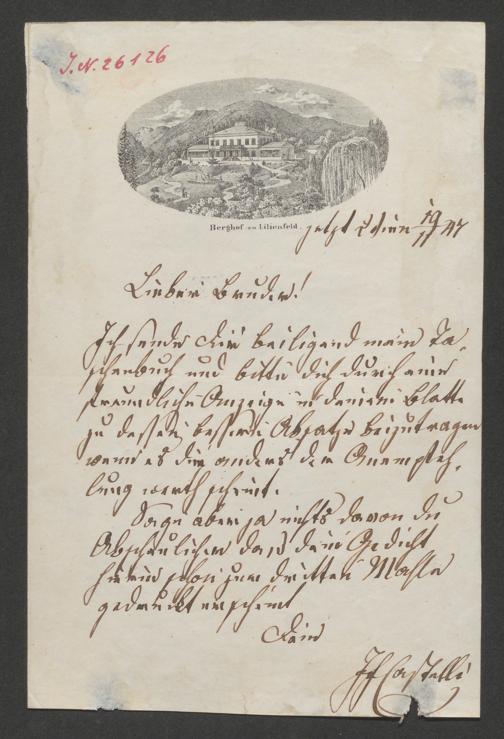 J.N. 26126
Berghof zu Lilienfeld.
jetzt Wien 19/11 47
Lieber Bruder!
Ich sende Dir beiligend mein Ta-
schenbuch und bitte dich durch eine
freundliche Anzeige in deinem Blatte
zu dessen bessern Absatze beizutragen
wenn es dir anders der Anempfeh-
lung werth scheint.
Sage aber ja nichts davon du
Abscheulicher daß dein Gedicht
hierin schon zum dritten Mahle
gedruckt erscheint
Dein
JFCastelli